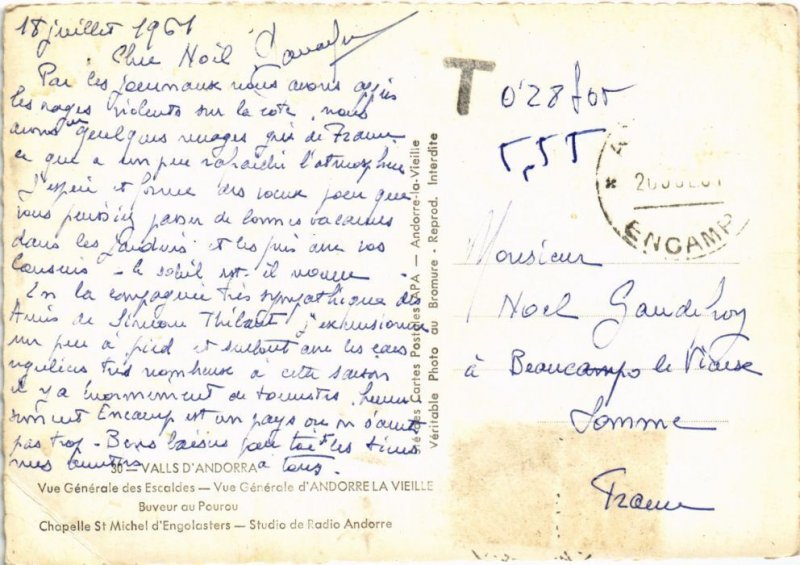 18 juillet 1961
Cher Noël
Par les journaux nous avons appris
les orages violents sur la côte, nous
avons eu quelques nuages gris de France
ce qui a un peu rafraichi l'atmosphère
J'espère et forme des voeux pour que
vous puissiez passer de bonnes vacances
dans les et les avec vos
cousins - le soleil est-il
En la compagnie très sympathique des
Amis de Simeon Thibaut j'excursionne
un peu à pied et surtout avec les cars
réguliers très nombreux à cette saison
il y a énormément de touristes, heureu
sement Encamp est un pays où on s'ennuie
pas trop - Bons baisers pour toi et les tiens
mes à tous.
30 — VALLS D'ANDORRA
Vue Générale des Escaldes — Vue Générale d'ANDORRE LA VIEILLE
Buveur au Pourou
Chapelle St Michel d'Engolasters — Studio de Radio Andorre
Cartes Postales APA — Andorre-la-Vieille
Véritable Photo au Bromure - Reprod. Interdite
T
0'28 for
5,55
ENCAMP
Monsieur
Noel Gaudefroy
à Beaucamps le Vieux
Somme
France